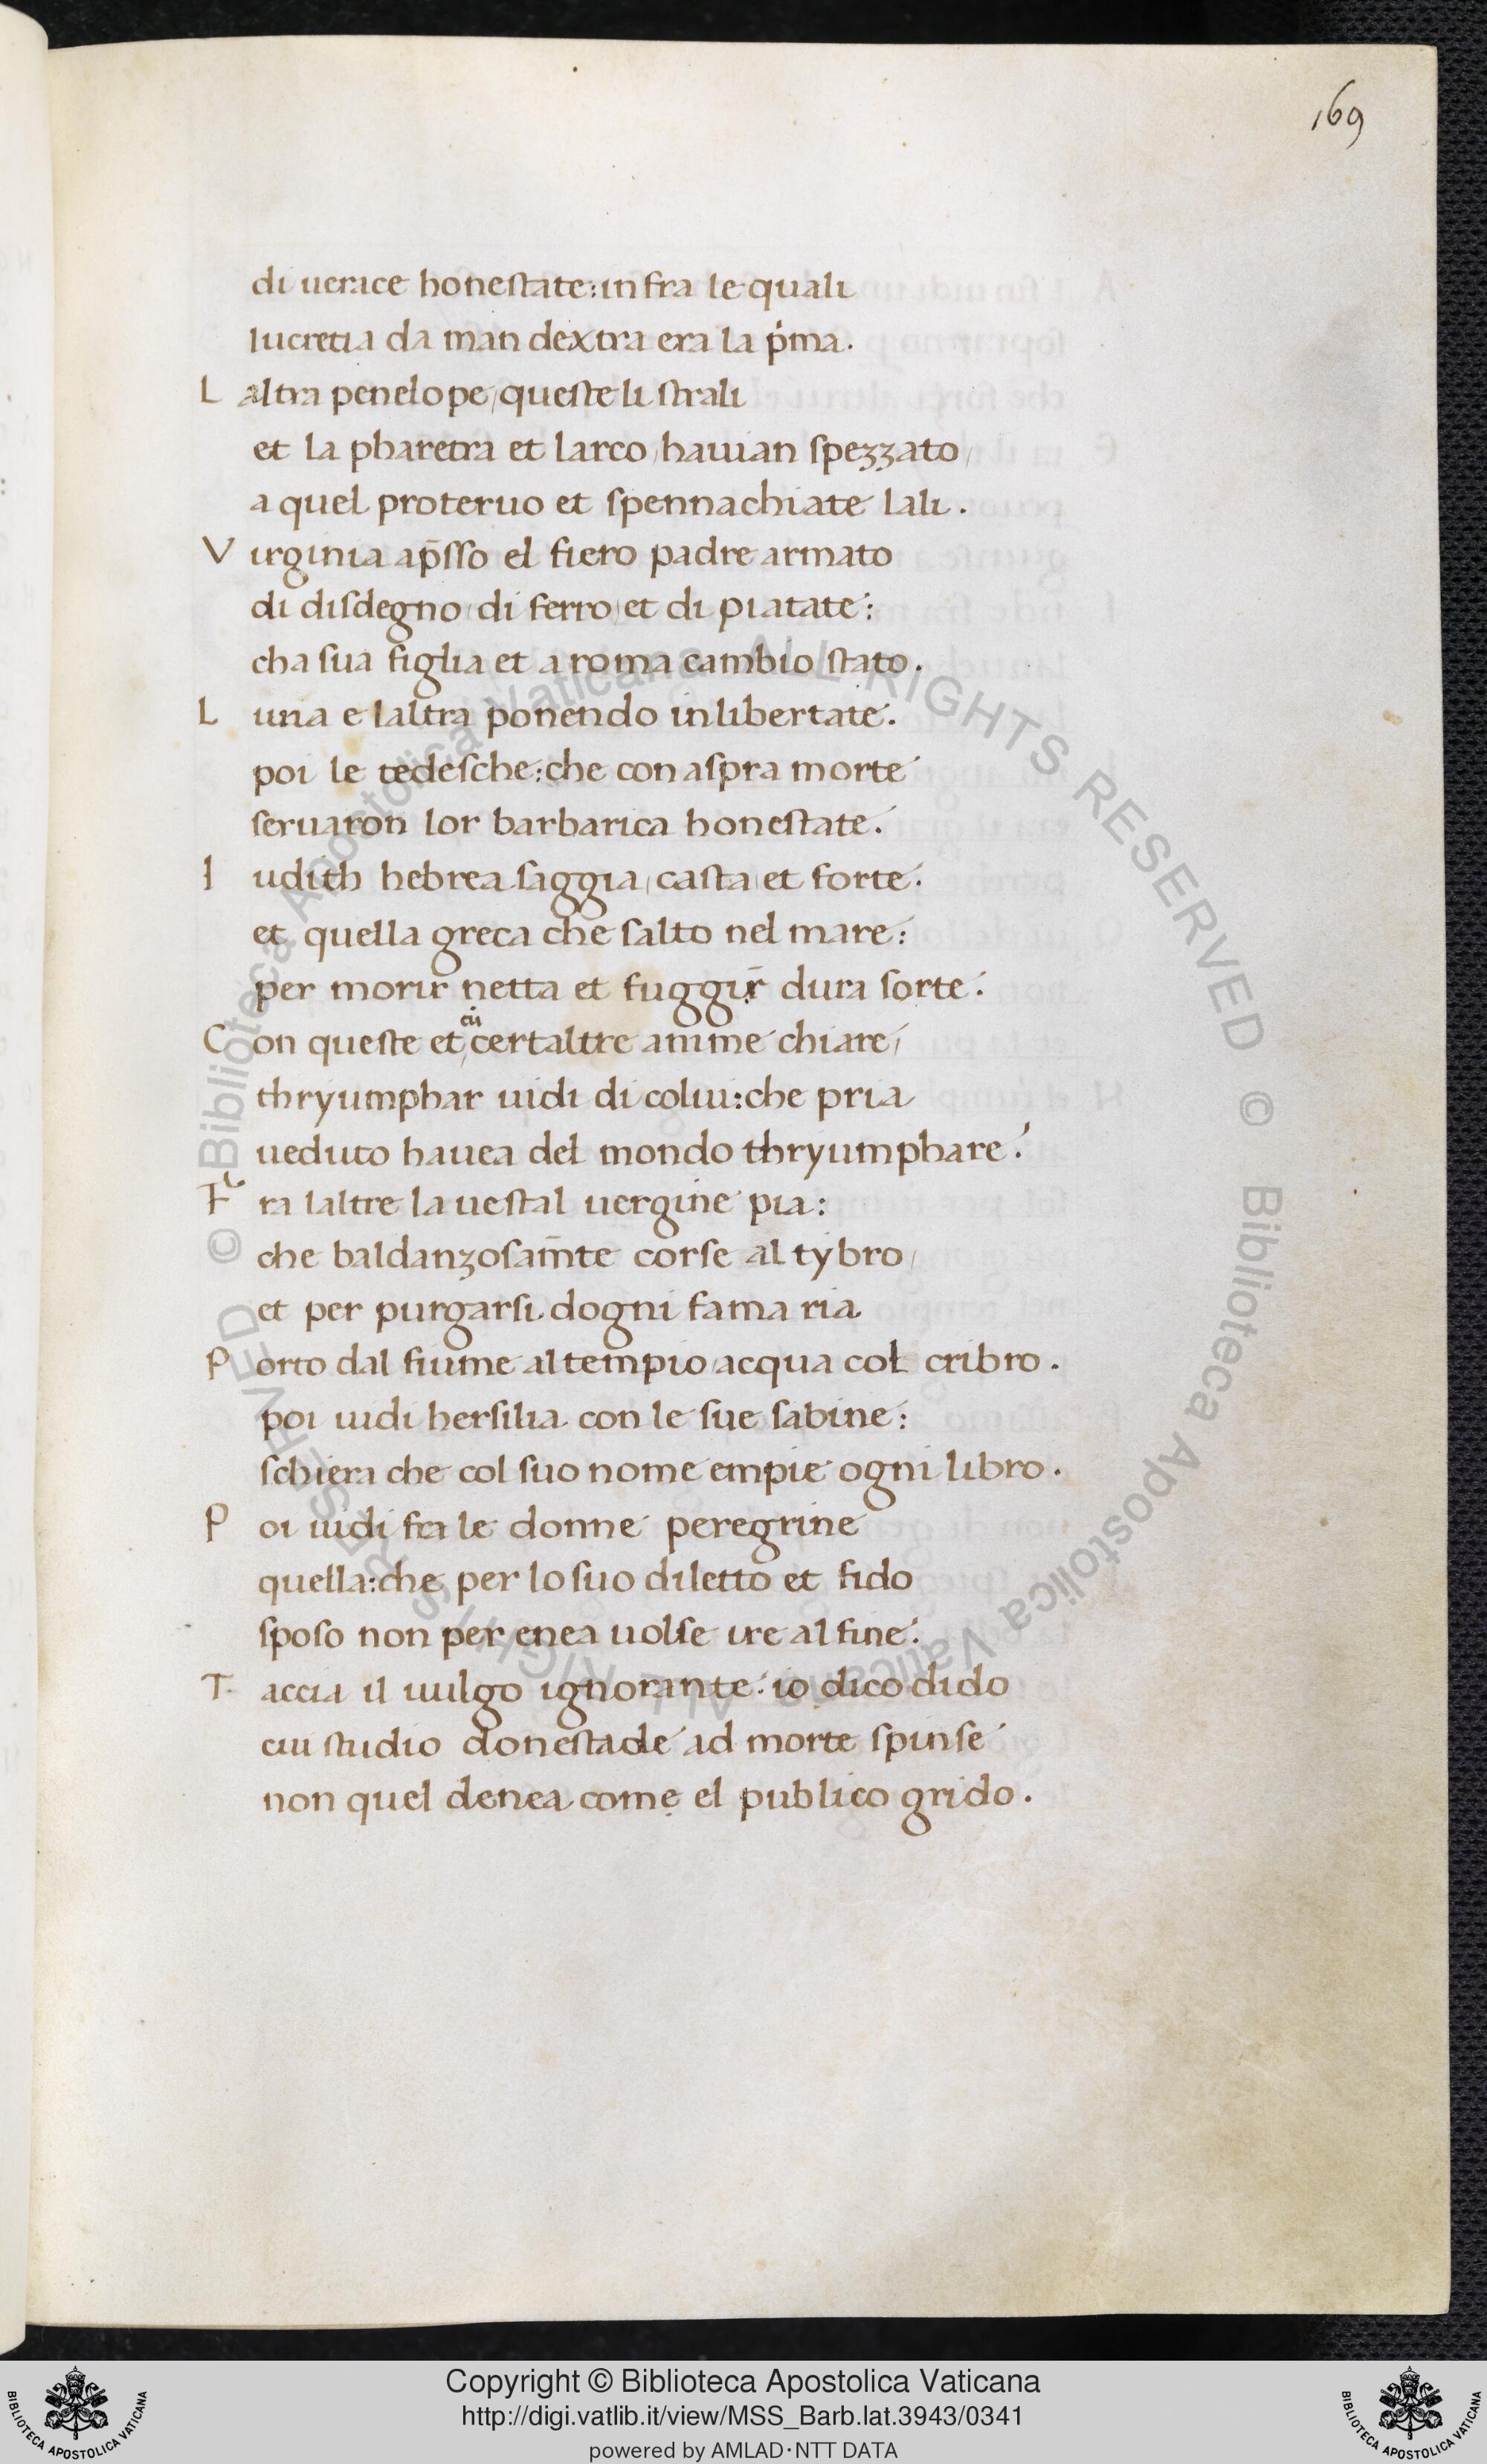 169
di uerace honestate: in fra le quali
lucretia da man dextra era la p̍ma.
L altra penelope, queste li strali
et la pharetra et larco, hauian spezzato,
a quel proteruo et spennachiate lali.
V irginia ap̄sso el fiero padre armato
di disdegno, di ferro, et di piatate:
cha sua figlia et a roma cambio stato.
L una e laltra ponendo in libertate.
poi le tedesche: che con aspra morte
seruaron lor barbarica honestate.
I udith hebrea saggia, casta, et forte.
et quella greca che salto nel mare:
per morir netta et fuggir dura sorte.
cū
C on queste et, certaltre anime chiare,
thryumphar uidi di colui: che pria
ueduto hauea del mondo thryumphare.
F ra laltre la uestal uergine pia:
che baldanzosam̄te corse al tybro,
et per purgarsi dogni fama ria
P orto dal fiume al tempio acqua col cribro.
poi uidi hersilia con le sue sabine:
schiera che col suo nome empie ogni libro.
P oi uidi fra le donne peregrine
quella: che per lo suo diletto et fido
sposo non per enea uolse ire al fine.
T accia il uulgo ignorante: io dico dido
cui studio donestade ad morte spinse
non quel denea come el publico grido.
© Biblioteca Apostolica Vaticana ALL RIGHTS RESERVED © Biblioteca Apostolica Vaticana ALL RIGHTS RESERVED
Copyright © Biblioteca Apostolica Vaticana
http://digi.vatlib.it/view/MSS_Barb.lat.3943/0341
powered by AMLAD·NTT DATA
BIBLIOTECA APOSTOLICA VATICANA
BIBLIOTECA APOSTOLICA VATICANA